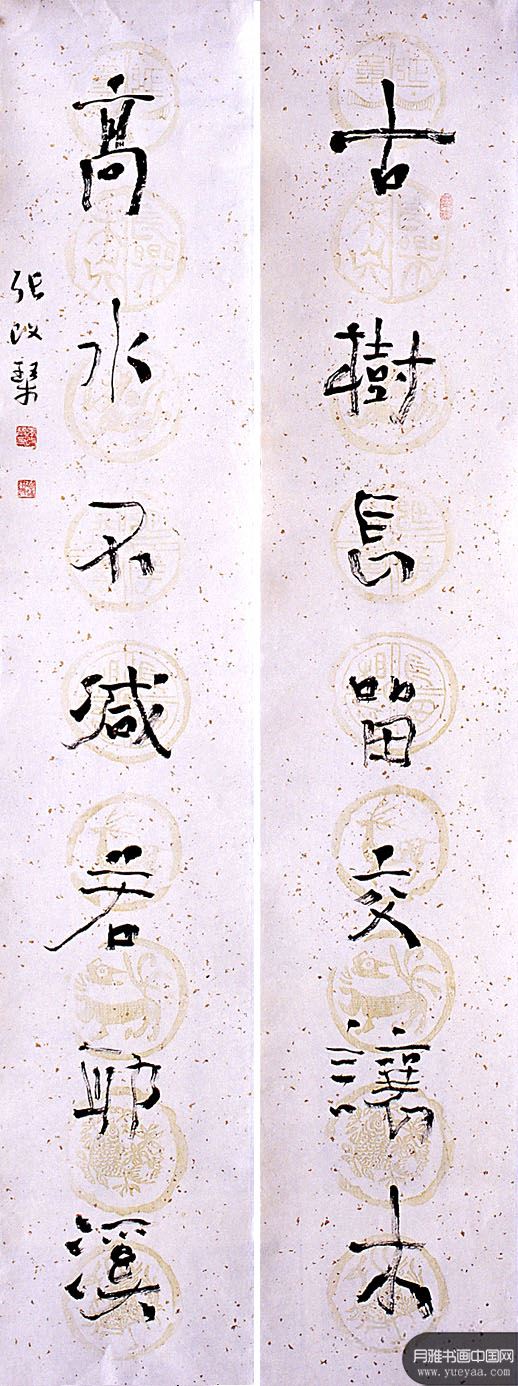 古樹長留交讓木
高水不減若耶溪
张改琴
月雅书画中国网
www.yueyaa.com